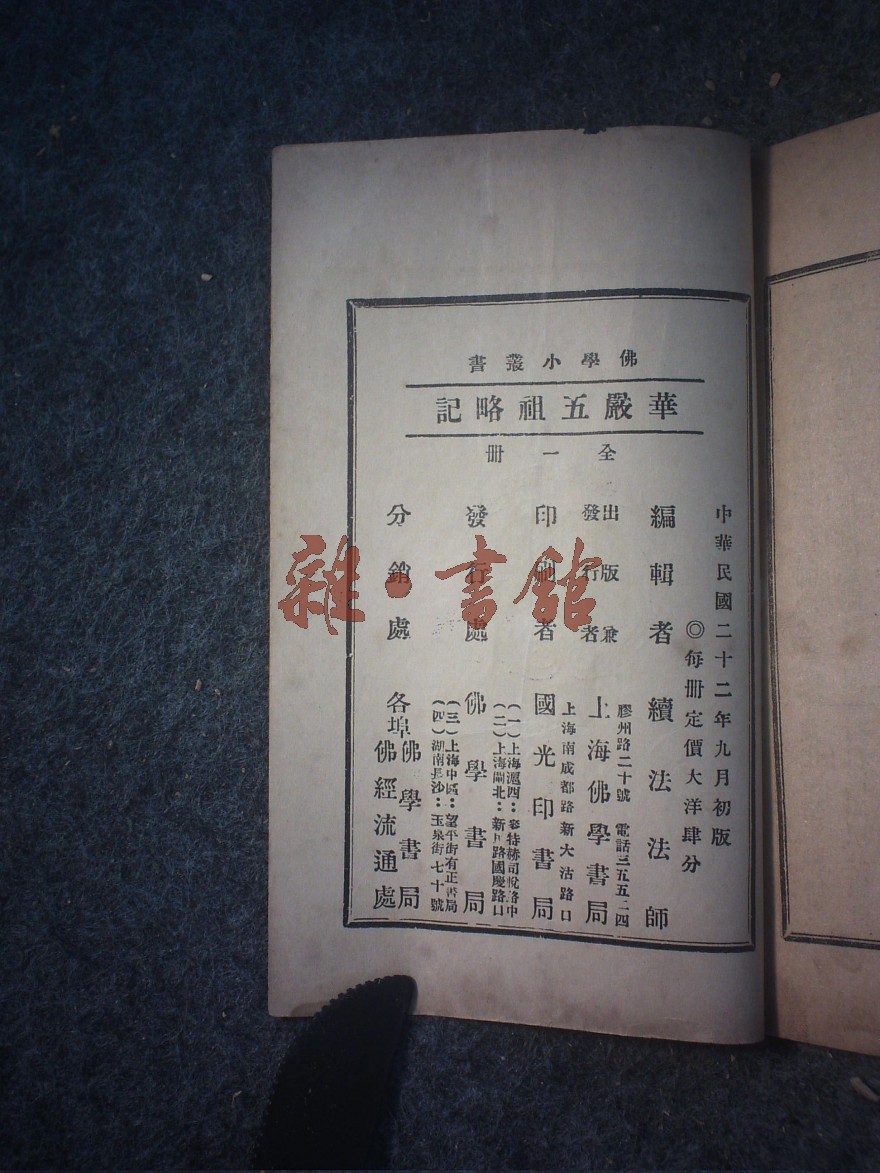 佛學小叢書
華嚴五祖略記
全一冊
中華民國二十二年九月初版
◎每册定價大洋肆分
編輯者 續法法師
膠州路二十號 電話三五五二四
出版兼發行者 上海佛學書局
上海南成都路新大沽路口
印刷者 國光印書局
(一)上海滬西：赫司脫路中
(二)上海閘北：新民路國慶路口
發行處 佛學書局
(三)上海中區：望平街有正書局
(四)湖南長沙：玉泉街七十號
分銷處 各埠佛學書局 佛經流通處
雜·書館